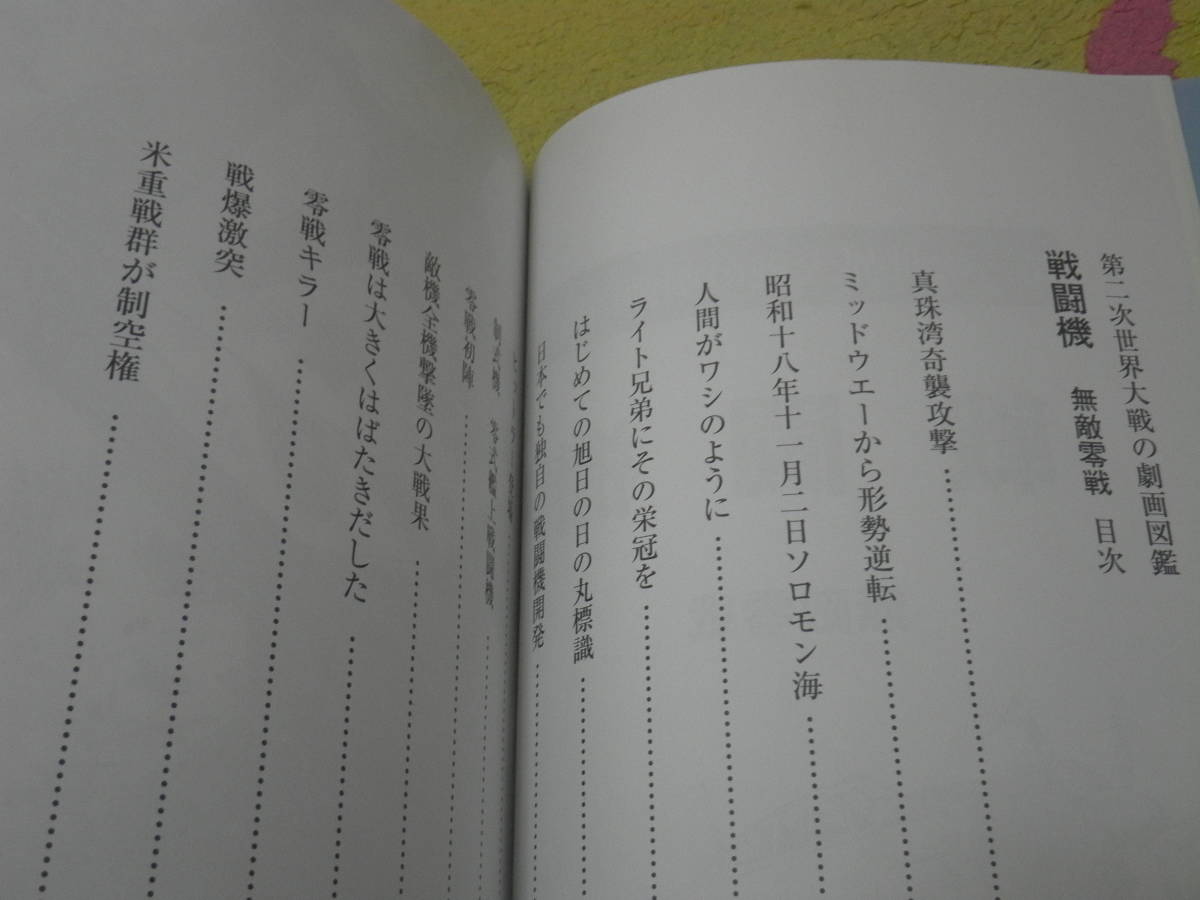 第二次世界大戦の劇画図鑑
戦闘機 無敵零戦 目次
真珠湾奇襲攻撃
ミッドウエーから形勢逆転
昭和十八年十一月二日ソロモン海
人間がワシのように
ライト兄弟にその栄冠を
はじめての旭日の日の丸標識
日本でも独自の戦闘機開発
零戦初陣
敵機全機撃墜の大戦果
零戦は大きくはばたきだした
零戦キラー
戦爆激突
米重戦群が制空権